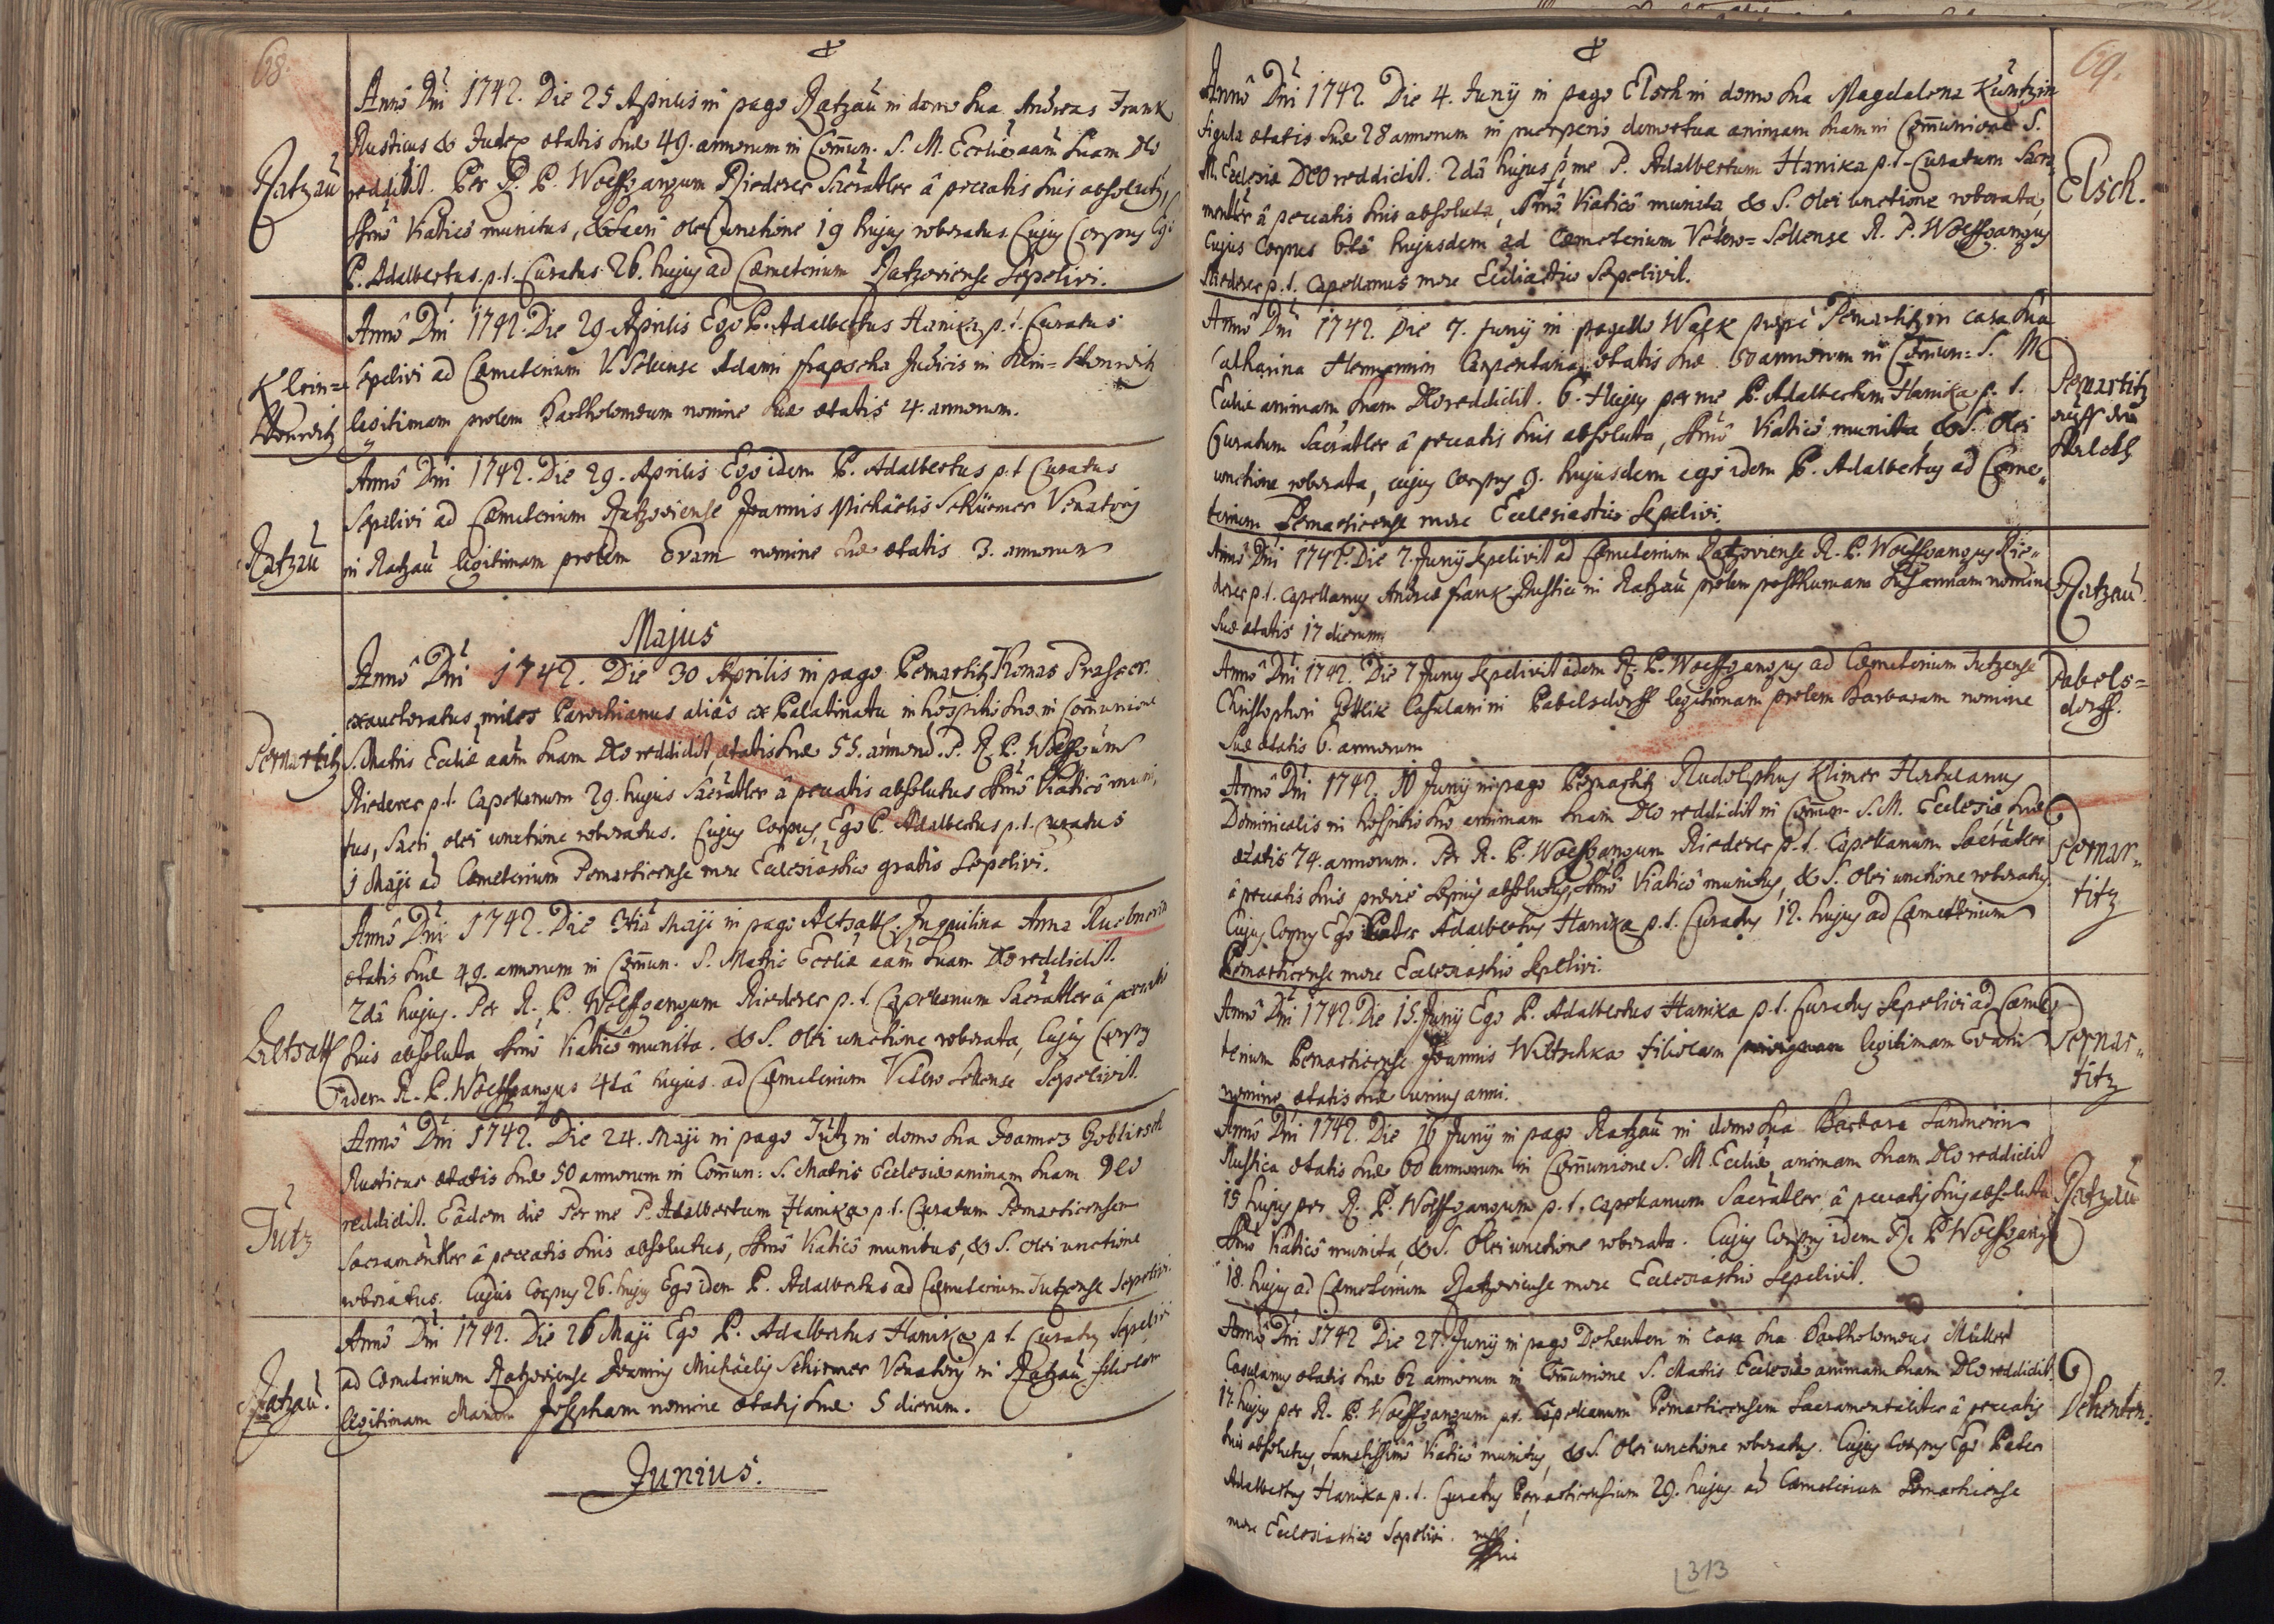 68.
Anno Dni 1742. Die 25 Aprilis in pago Ratzau in domo sua Andreas Frank
Rusticus & Judex etatis suæ 49. annorum in Comun. S. M. Ecclie aam suam Deo
Ratzau reddidit. Per R. P. Wolffgangum Riederer Sacratler â peccatis suis absolutus,
Ssmô Viaticô munitus, & Sacri olei unctione 19 hujus roboratus. Cujus Corpus Ego
P. Adalbertus p.t. Curatus 26. hujus ad Cæmeterium Ratzoviense Sepelivi.
Anno Dni 1742. Die 29 Aprilis Ego P. Adalbertus Hanika p.t. Curatus
Klein= sepelivi ad Cæmeterium V. Sellense Adami Judicis in Klein=
legitimam prolem Bartholomæum nomine suæ etatis 4. annorum.
Anno Dni 1742. Die 29. Aprilis Ego idem P. Adalbertus p.t. Curatus
Sepelivi ad Cæmeterium Ratzoviense Joannis Michaëlis Venatoris
Ratzau in Ratzau legitimam prolem Evam nomine suæ etatis 3. annorum
Majus
Anno Dni 1742. Die 30 Aprilis in pago Pernartitz Thomas Prasser
exauctoratus miles Parochianus aliàs ex Palatinatu in hospitio suo in Communione
Pernartitz S. Matris Ecclie aam suam Deo reddidit, ætatis suæ 55. annorum. P. R. P. Wolffgangum
Riederer p.t. Capellanum 29. hujus Sacratler â peccatis absolutus Ssmô Viaticô muni,
tus, Sacri olei unctione roboratus. Cujus Corpus, Ego P. Adalbertus p.t. Curatus
1 Maji ad Cæmeterium Pernarticense more Ecclesiastico gratis Sepelivi.
Anno Dni 1742. Die 3tia Maji in pago Altsattl Inquilina Anna
etatis suæ 49. annorum in Comun. S. Matris Ecclie aam suam Deo reddidit.
2dâ hujus. Per R. P. Wolffgangum Riederer p.t. Capellanum Sacratler â peccatis
Altsattl suis absoluta Ssmô Viaticô munita. & S. Olei unctione roborata, Cujus Corpus
Idem R. P. Wolffgangus 4tâ hujus ad Cæmeterium Vetero Sellense Sepelivit.
Anno Dni 1742. Die 24. Maji in pago Jutz in domo sua Joannes Goblirsch
Rusticus etatis suæ 50 annorum in Comun: S. Matris Ecclesiæ animam suam Deo
Jutz reddidit. Eâdem die Per me P. Adalbertum Hanika p.t. Curatum Pernarticensem
Sacramentler â peccatis suis absolutus, Ssmô Viaticô munitus, & S. Olei unctione
roboratus. Cujus Corpus 26. hujus Ego idem P. Adalbertus ad Cæmeterium Jutzense Sepelivi.
Anno Dni 1742. Die 26 Maji Ego P. Adalbertus Hanika p.t. Curatus Sepelivi
ad Cæmeterium Ratzoviense Joannis Michaëlis Schirmer Venatoris in Ratzau filiolam
Ratzau. legitimam Mariam Josepham nomine etatis suæ 5 dierum.
Junius.
69.
Anno Dni 1742. Die 4. Junij in pago Elsch in domo sua Magdalena Küntzin
figula etatis suæ 28 annorum in puerperio demortua animam suam in Communione S.
M. Ecclesiæ Deo reddidit. 2dâ hujus p me P. Adalbertum Hanika p.t. Curatum Sacra, Elsch.
mentler â peccatis suis absoluta, Ssmô Viaticô munita & S. Olei unctione roborata,
Cujus Corpus 6tâ hujusdem ad Cæmeterium Vetero=Sellense R. P. Wolffgangus
Riederer p.t. Capellanus more Eccliastico Sepelivit.
Anno Dni 1742. Die 7. Junij in pagello prope Pernartitz in casa sua
Catharina Hermannin Carpentaria etatis suæ 50 annorum in Comun: S. M
Ecclie animam suam Deo reddidit. 6. Hujus per me P. Adalbertum Hanika p.t. Pernartitz
Curatum Sacratler â peccatis suis absoluta, Ssmô Viaticô munita & S. Olei
unctione roborata, cujus Corpus 9. hujusdem ego idem P. Adalbertus ad Cæme,,
terium Pernarticense more Ecclesiastico Sepelivi.
Anno Dni 1742. Die 7. Junij Sepelivit ad Cæmeterium Ratzoviense R. P. Wolffgangus Rie,,
derer p.t. Capellanus Andreæ Frank Rustici in Ratzau prolem posthumam Susannam nomine Ratzau.
suæ etatis 17 dierum
Anno Dni 1742. Die 7 Juny Sepelivit idem R. P. Wolffgangus ad Cæmeterium Jutzense Pabels=
Christophori Gottlik Casulani in Pabelsdorff legitimam prolem Barbaram nomine dorff.
Suæ etatis 6. annorum
Anno Dni 1742. 10 Junij in pago Pernartitz Rudolphus Klimer Hortulanus
Dominicalis in hospitio suo animam suam Deo reddidit in Comun. S. M. Ecclesiæ suæ
etatis 74. annorum. Per R. P. Wolffgangum Riederer p.t. Capellanum Sacratler Pernar,,
â peccatis suis prævie sæpius absolutus, Ssmô Viaticô munitus, & S. Olei unctione roboratus. titz
Cujus Corpus Ego Pater Adalbertus Hanika p.t. Curatus 12. hujus ad Cæmeterium
Pernarticense more Ecclesiastico Sepelivi.
Anno Dni 1742. Die 15. Junij Ego P. Adalbertus Hanika p.t. Curatus Sepelivi ad Cæme,,
terium Pernarticense Joannis Wiltschka filiolam legitimam Evam Pernar,,
nomine etatis suæ unius anni. titz
Anno Dni 1742. Die 16 Junij in pago Ratzau in domo sua Barbara Sandnerin
Rustica etatis suæ 60 annorum in Communione S. M. Ecclie animam suam Deo reddidit
15 hujus per R. P. Wolffgangum p.t. Capellanum Sacratler â peccatis suis absoluta Ratzau
Ssmô Viaticô munita, & S. Olei unctione roborata. Cujus Corpus idem R. P. Wolffgangus
18. hujus ad Cæmeterium Ratzoviense more Ecclesiastico Sepelivit.
Anno Dni 1742 Die 27. Junij in pago Dehenten in casa sua Bartholomeus Müller
Casulanus etatis suæ 62 annorum in Communione S. Matris Ecclesiæ animam suam Deo reddidit.
17. hujus per R. P. Wolffgangum p.t. Capellanum Pernarticensem Sacramentaliter â peccatis Dehenten.
suis absolutus, Sanctissimô Viaticô munitus, & S. Olei unctione roboratus. Cujus Corpus Ego Pater
Adalbertus Hanika p.t. Curatus Pernarticensium 29. hujus ad Cæmeterium Pernarticense
more Ecclesiastico Sepelivi.
313